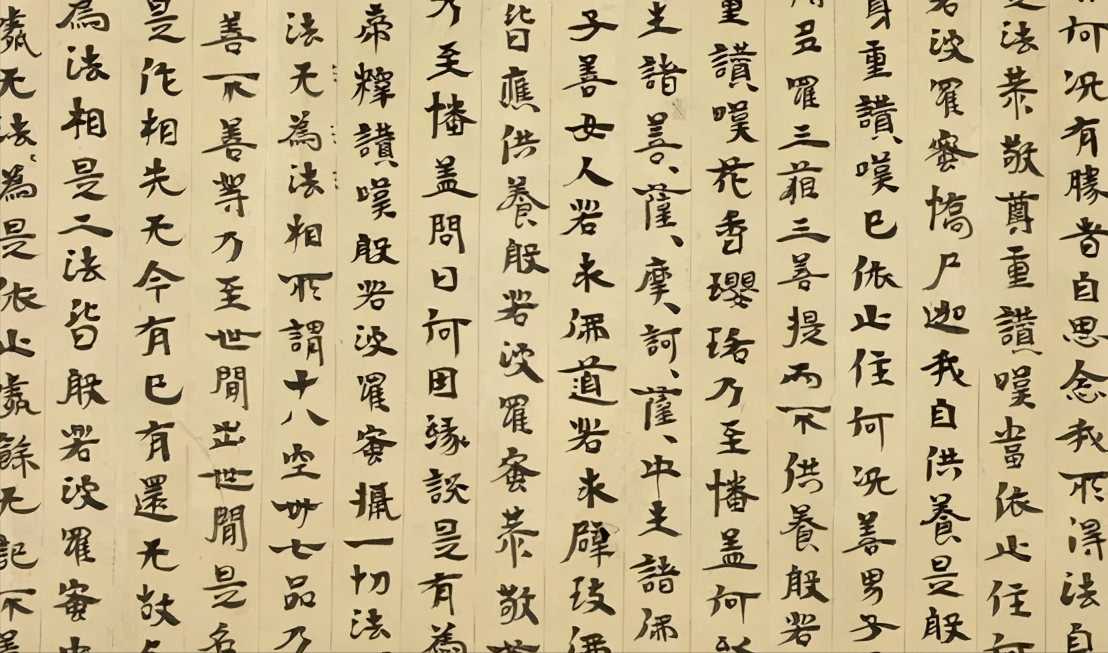 何况有勝者自思念我所得法自
法恭敬尊重讃嘆當依止住何
若波羅蜜憍尸迦我自供養是般
身重讃嘆已依止住何况善男子
多羅三藐三菩提而不供養般若
重讃嘆花香瓔珞乃至幡盖何以
生諸菩、薩、摩、訶、薩、中生諸佛
子善女人若求佛道若求辟支佛
皆應供養般若波羅蜜恭敬
乃至幡盖問曰何因緣談是有為
帝釋讃嘆般若波羅蜜攝一切法
法无為法相所謂十八空卅七品乃
善不善等乃至世間出世間是名
是作相先无今有已有還无故
為法相是二法皆般若波羅蜜中
處无法、為是依止處餘无記不善